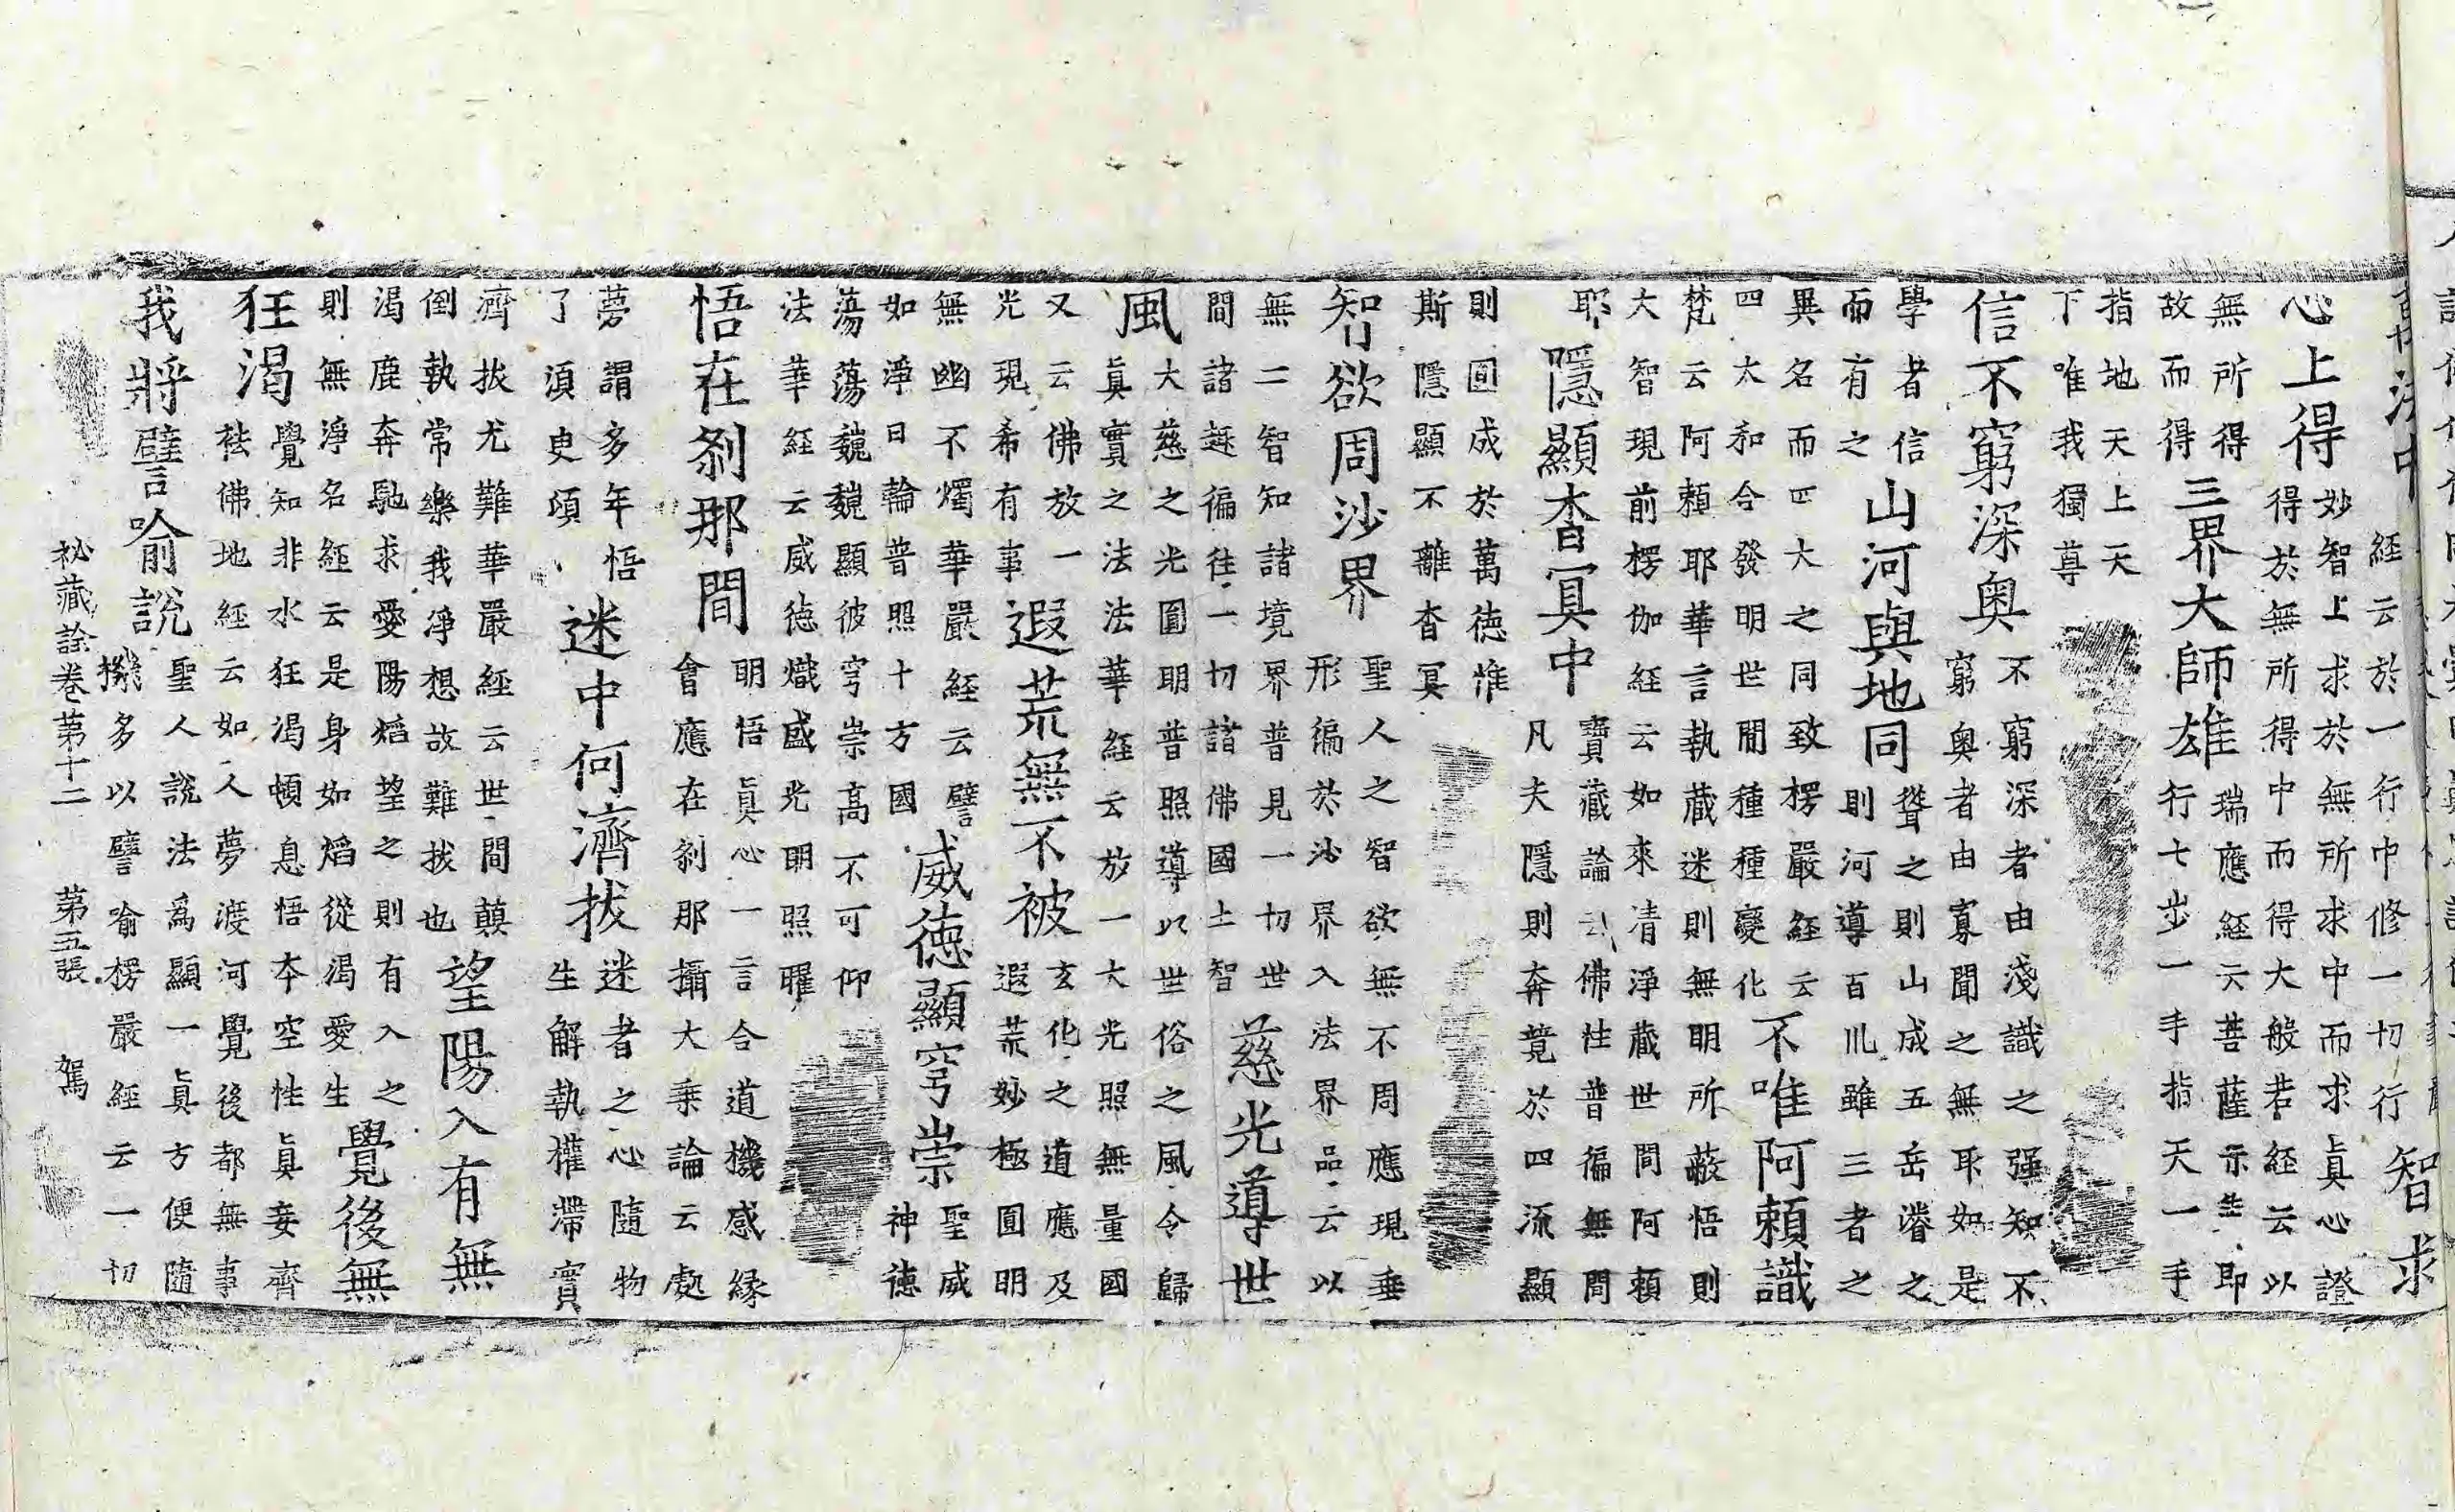 法中經云於一行中修一切行智求
心上得妙智上求於無所求中而求眞心證
得於無所得中而得大般若経云以
無所得
故而得三界大師雄瑞應経云菩薩示生即
行七步一手指天一手
指地天上天
下唯我獨尊
信不窮深奥不窮深者由淺識之强知不
窮奥者由寡聞之無耶如是
學者信
而有之山河與地同聳之則山成五岳濬之
則河導百川雖三者之
異名而四大之同致楞嚴経云
四大和合發明世間種種變化不唯阿頼識
梵云阿頼耶華言執蔵迷則無明所蔽悟則
大智現前楞伽経云如來清淨蔵世間阿頼
耶隱顯杳冥中寶蔵論云佛性普徧無間
凡夫隱則奔競於四流顯
則圓成於萬徳惟
斯隱顯不離杳冥
智欲周沙界聖人之智欲無不周應現垂
形徧於沙界入法界品云以
無二智知諸境界普見一切世
間諸趣徧往一切諸佛國土智慈光導世
風大慈之光圓明普照導以世俗之風令歸
眞實之法法華経云放一大光照無量國
又云佛放一
光現希有事遐荒無不被玄化之道應及
遐荒妙極圓明
無幽不燭華嚴経云譬
如淨日輪普照十方國威徳顯穹崇聖威
神徳
蕩蕩巍巍顯彼穹崇高不可仰
法華経云威徳熾盛光明照曜
悟在剎那間明悟眞心一言合道機感縁
會應在剎那攝大乘論云處
夢謂多年悟
了須臾頃迷中何濟拔迷者之心隨物
生解執權滯實
濟拔尤難華嚴経云世間顛
倒執常樂我淨想故難拔也望陽入有無
渴鹿奔馳求愛陽焰望之則有入之
則無淨名経云是身如焰從渴愛生覺後無
狂渴覺知非水狂渴頓息悟本空性眞妄齊
袪佛地経云如人夢渡河覺後都無事
我將譬喻說聖人說法爲顯一眞方便隨
機多以譬喻楞嚴経云一切
秘藏詮卷第十二 第五張 駕